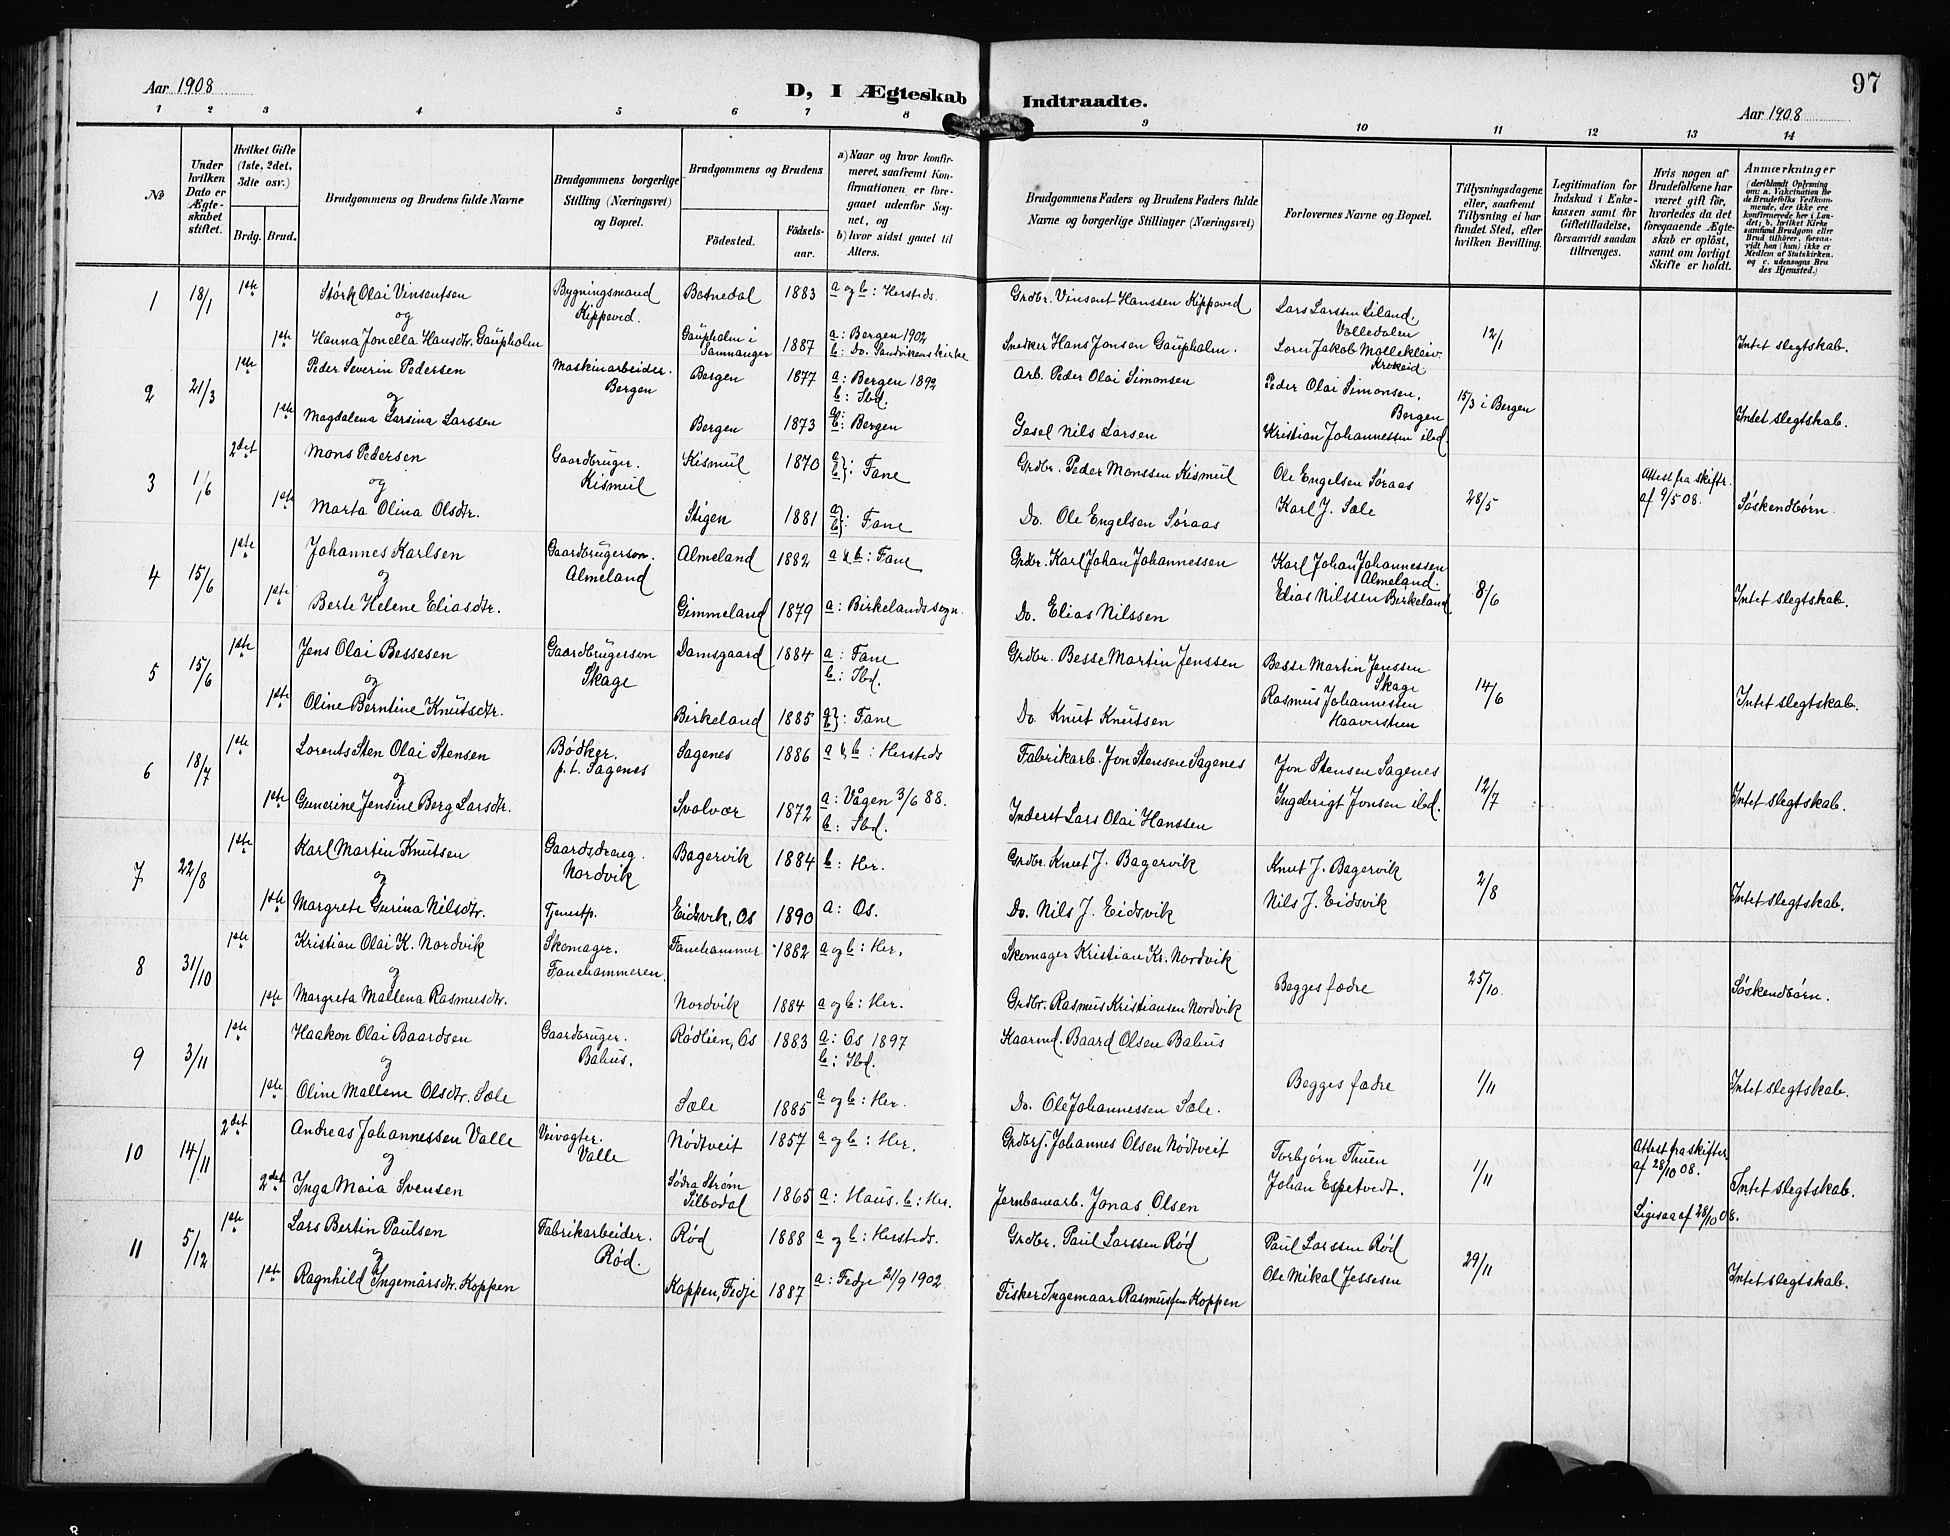 97
Aar 1908
D, I Ægteskab Indtraadte.
Aar 1908
1 2 3 4 5 6 7 8 9 10 11 12 13 14
No
Under hvilken Dato er Ægteskabet stiftet.
Hvilket Gifte (1ste, 2det, 3die osv.)
Brdg. Brud.
Brudgommens og Brudens fulde Navne
Brudgommens borgerlige Stilling (Næringsvei) og Bopæl.
Brudgommens og Brudens
Fødested.
Fødselsaar.
a) Naar og hvor konfirmeret, saafremt Konfirmationen er foregaaet udenfor Sognet, og
b) hvor sidst gaaet til Alters.
Brudgommens Faders og Brudens Faders fulde Navne og borgerlige Stillinger (Næringsvei)
Forlovernes Navne og Bopæl.
Tillysningsdagene eller, saafremt Tillysning ei har fundet Sted, efter hvilken Bevilling.
Legitimation for Indskud i Enkekassen samt for Giftetilladelse, forsaavidt saadan tiltrænges.
Hvis nogen af Brudefolkene har været gift før, hvorledes da det foregaaende Ægteskab er opløst, samt om lovligt Skifte er holdt.
Anmærkninger
(deriblandt Oplysning om: a. Vakcination for de Brudefolks Vedkommende, der ikke ere konfirmerede her i Landet; b. hvilket Kirkesamfund Brudgom eller Brud tilhører, forsaavidt han (hun) ikke er Medlem af Statskirken. og c. udensogns Brudes Hjemsted.)
1 18/1 1ste Størk Olai Vinsentsen Bygningsmand Kippeved. Botnedal 1883 a og b: Hersteds. Grdbr. Vinsent Hanssen Kippeved Lars Larssen Liland, Valledalen 12/1
og
1ste Hanna Jonella Hansdtr. Gaupholm Gaupholm i Samnanger 1887 a: Bergen 1902 b: Do. Sandvikenskirke Snedker Hans Jonsen Gaupholm. Intet slegtskab.
2 21/3 1ste Peder Severin Pedersen Maskinarbeider. Bergen Bergen 1877 a: Bergen 1892 b: Ibd. Arb. Peder Olai Simonsen Peder Olai Simonsen, Bergen 15/3 i Bergen
og
1ste Magdalena Larsina Larssen Bergen 1873 a: b: Bergen Gesel Nils Larsen Kristian Johannessen ibd. Intet slegtskab.
3 1/6 2det Mons Pedersen Gaardbruger. Kismul Kismul 1870 a b}: Fane Grdbr. Peder Monssen Kismul Ole Engelsen Søraas 28/5 Attest fra skiftr. af 9/5 08.
og
1ste Marta Olina Olsdtr. Stigen 1881 a b}: Fane Do. Ole Engelsen Søraas Karl J. Sæle Søskendbørn.
4 15/6 1ste Johannes Karlsen Gaardbrugerson. Almeland Almeland 1882 a & b: Fane Grdbr. Karl Johan Johannessen Karl Johan Johannessen Almeland. 8/6
og
1ste Berte Helene Eliasdtr. Gimmeland 1879 a: Birkelands sogn. Do. Elias Nilssen Elias Nilssen Birkeland Intet slegtskab.
5 15/6 1ste Jens Olai Bessesen Gaardbrugerson Skage Damsgaard 1884 a: Fane b: Ibd. Grdbr. Besse Martin Jenssen Besse Martin Jenssen Skage 14/6
og
1ste Oline Berntine Knutsdtr. Birkeland 1885 a b}: Fane Do. Knut Knutsen Rasmus Johannesten Intet slegtskab.
6 18/7 1ste Lorents Sten Olai Stensen Bødker. p.t. Sagenes Sagenes 1886 a & b: Hersteds Fabrikarb. Jon Stensen Sagenes Jon Stensen Sagenes 12/7
og
1ste Gunerine Jensine Berg Larsdtr. Svolvær 1872 a: Vågen 3/6 88. b: Ibd. Inderst Lars Olai Hanssen Ingebrigt Jonsen ibd. Intet slegtskab.
7 22/8 1ste Karl Martin Knutsen Gaardsdreng. Nordvik Bagervik 1884 b: Her. Grdbr. Knut J. Bagervik Knut J. Bagervik 2/8
og
1ste Margrete Gurina Nilsdtr. Tjenestp. Eidsvik, Os 1890 a: Os. Do. Nils J. Eidsvik Nils J. Eidsvik Intet slegtskab.
8 31/10 1ste Kristian Olai K. Nordvik Skomager. Fanehammeren Fanehammer 1882 a og b: Her. Skomager Kristian Kr. Nordvik Begges fædre 25/10.
og
1ste Margreta Mallena Rasmusdtr. Nordvik 1884 a og b: Her. Grdbr. Rasmus Kristiansen Nordvik Søskendbørn.
9 3/11 1ste Haakon Olai Baardsen Gaardbruger. Bahus. Rødlien, Os 1883 a: Os 1897 b: Ibd. Kaarmd. Baard Olsen Bahus Begges fædre 1/11
og
1ste Oline Mallene Olsdtr. Sæle Sæle 1885 a og b: Her. Do. Ole Johannessen Sæle. Intet slegtskab.
10 14/11 2det Andreas Johannessen Valle Veivogter. Valle Nødtveit 1857 a og b: Her. Johannes Olsen Nødtveit Torbjørn Thuen 1/11 Attest fra skifter. af 28/10 08.
og
2det Inga Maia Svensen Södra Strøm Silbodal 1865 a: Haus. b: Her. Jernbanearb. Jonas Olsen Johan Espetvedt. Ligesaa af 28/10 08. Intet slegtskab.
11 5/12 1ste Lars Bertin Paulsen Fabrikarbeider. Rød. Rød 1888 a og b: Hersteds. Grdbr. Paul Larssen Rød Paul Larssen Rød 29/11
og
1ste Ragnhild Ingemårsdtr. Koppen Koppen, Fedje 1887 a: Fedje 21/9 1902 Fisker Ingemaar Rasmussen Koppen Ole Mikal Jessesen Intet slegtskab.